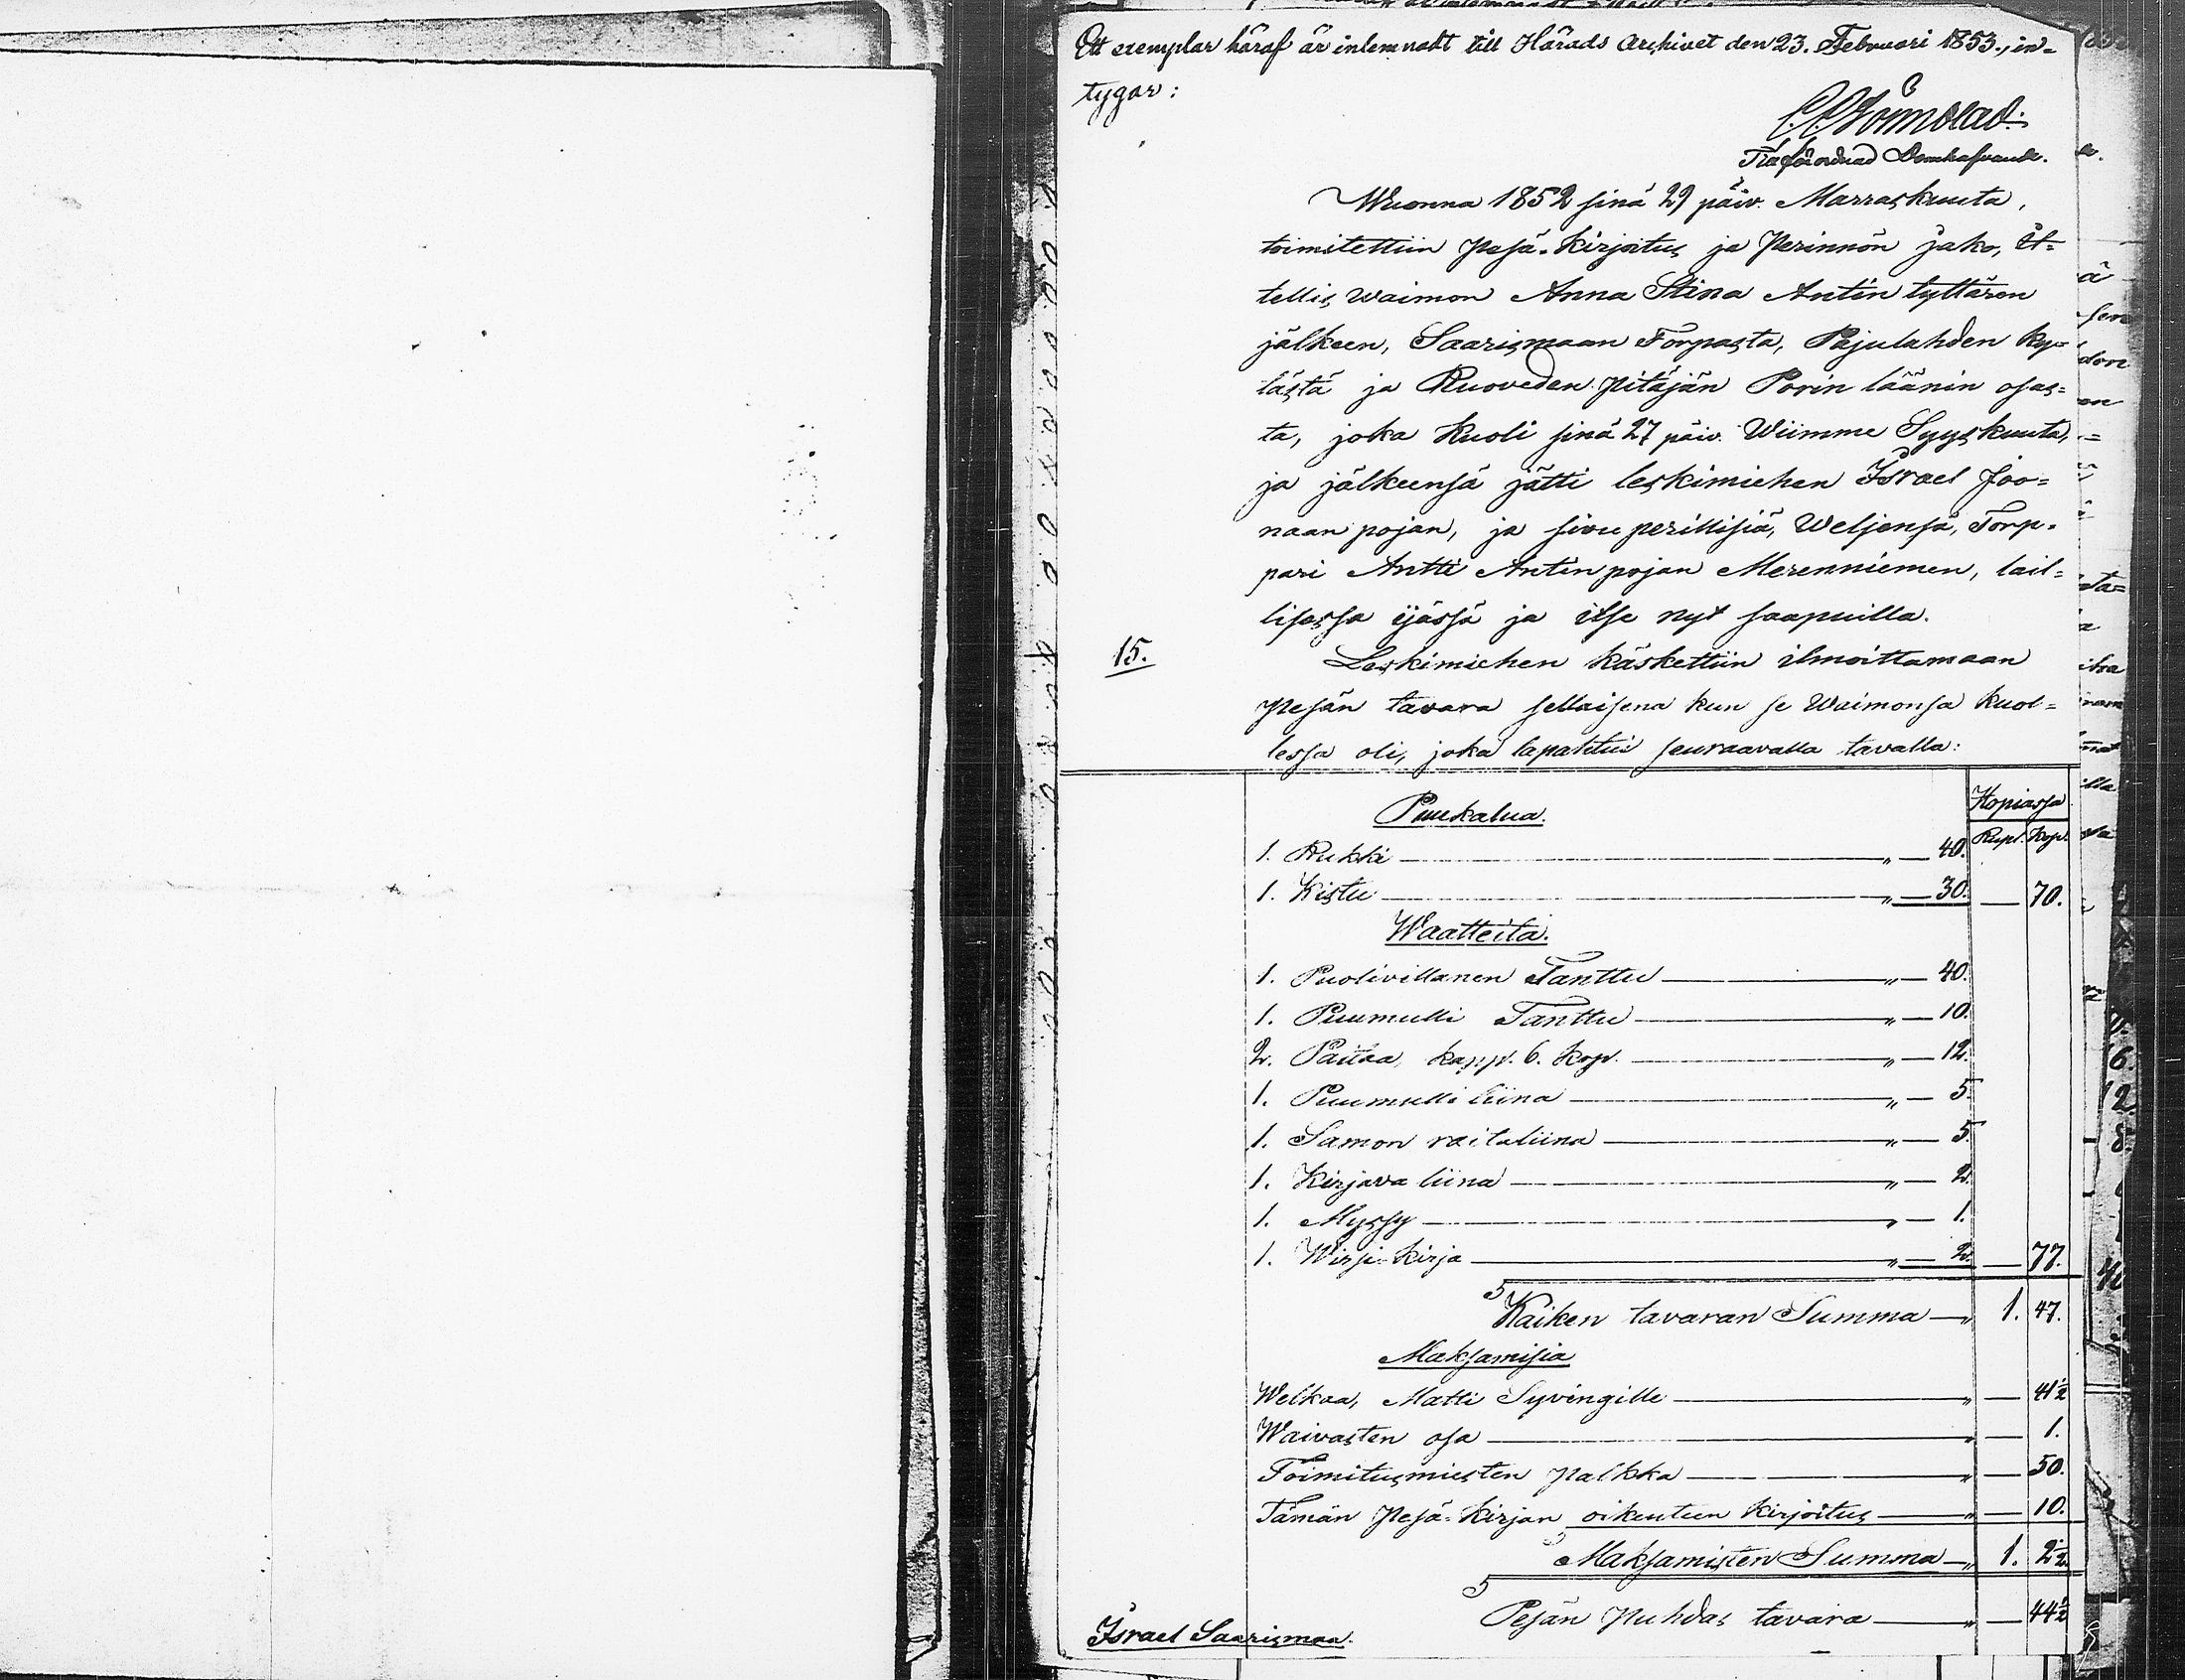 Ett exemplar häraf är inlemnadt till Härads Archivet den 23. Februari 1853., in-
tygar:
Wuonna 1852 sinä 29 päiv. Marraskuuta,
toimitettiin Pesä-Kirjoitus ja Perinnön jako, It-
tellis waimon Anna Stina Antin tyttären
jälkeen, Saarismaan Torpasta, Pajulahden ky-
lästä ja Ruoveden Pitäjän Porin läänin osas-
ta, joka kuoli sinä 27 päiv. Wiimme Syyskuuta,
ja jälkeensä jätti leskimiehen Israel Joo-
naan pojan, ja sivu perillisiä, Weljensä, Torp-
pari Antti Antin pojan Merenniemen, lail-
lisessa ijässä ja itse nyt saapuilla.
15.
Leskimiehen käskettiin ilmoittamaan
Pesän tavara sellaisena kun se Waimonsa kuol-
lessa oli, joka tapahtui seuraavalla tavalla:
Puukalua. Hopiassa
Rupl. Kop.
1. Rukki " 40.
1. Kistu " 30. 70.
Waatteita.
1. Puolivillanen Tanttu " 40.
1. Puumulli Tanttu " 10.
2. Paitaa, kapp. 6. kop. " 12.
1. Puumulli liina " 5.
1. Samon raitaliina " 5.
1. Kirjava liina " 2.
1. Myssy " 1.
1. Wirsi-kirja " 2. 77.
Kaiken tavaran Summa " 1. 47.
Maksamisia
Welkaa, Matti Syvingille " 41½
Waivasten osa " 1.
Toimitusmiesten palkka " 50.
Tämän Pesä-kirjan oikeuteen kirjoitus " 10.
Maksamisten Summa " 1. 2½
Pesän Puhdas tavara " 44½
Israel Saarismaa.